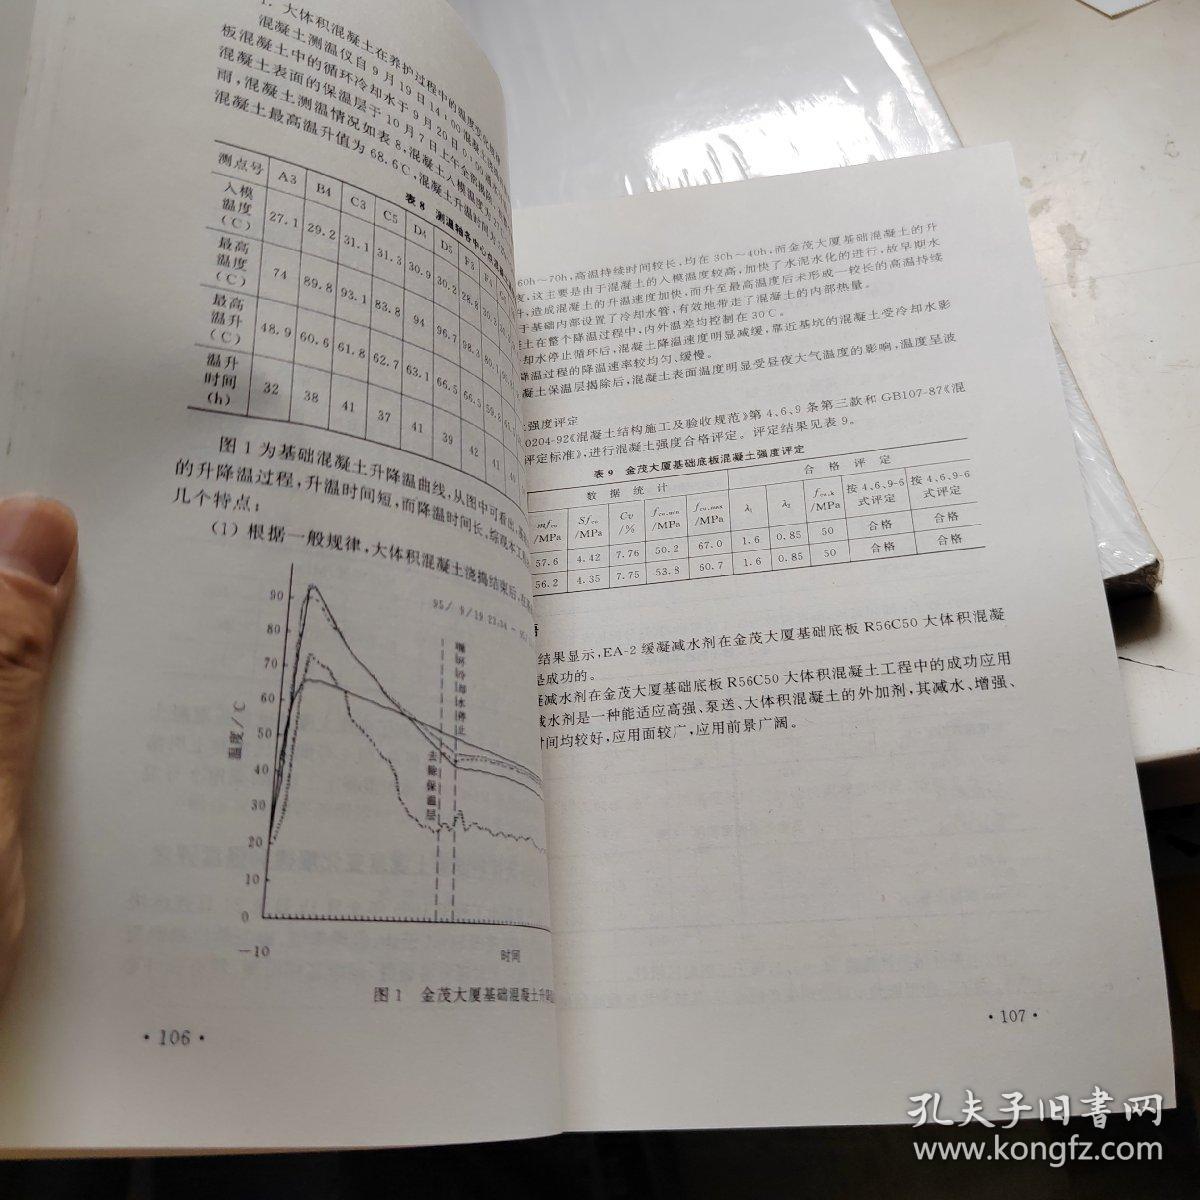 1. 大体积混凝土在养护过程中的温度变化规律
混凝土测温仪自9月19日14:00混凝土浇捣
板混凝土中的循环冷却水于9月20日0:00通水
混凝土表面的保温层于10月7日上午全部揭除
雨,混凝土测温情况如表8,混凝土入模温度为
混凝土最高温升值为68.6℃,混凝土升温时间为
表8 测温轴各中心点温
测点号 A3 B4 C3 C5 D4 D5 F3
入模温度(℃) 27.1 29.2 31.1 31.3 30.9 30.2 28.8
最高温度(℃) 74 89.8 93.1 83.8 94 96.7 98.3
最高温升(℃) 48.9 60.6 61.8 62.7 63.1 66.5 66.5 59.8
温升时间(h) 32 38 41 37 41 39 42 41
图1为基础混凝土升降温曲线,从图中可看出,基础
的升降温过程,升温时间短,而降温时间长,综观本工程
几个特点:
(1)根据一般规律,大体积混凝土浇捣结束后,在
95/ 9/19 23:34 -
循环冷却水停止
去除保温层
温度/℃
90
80
70
60
50
40
30
20
10
0
-10
时间
图1 金茂大厦基础混凝土升降
·106·
60h~70h,高温持续时间较长,均在30h~40h,而金茂大厦基础混凝土的升
度,这主要是由于混凝土的入模温度较高,加快了水泥水化的进行,故早期水
件,造成混凝土的升温速度加快,而升至最高温度后未形成一较长的高温持续
于基础内部设置了冷却水管,有效地带走了混凝土的内部热量。
凝土在整个降温过程中,内外温差均控制在30℃。
却水停止循环后,混凝土降温速度明显减缓,靠近基坑的混凝土受冷却水影
降温过程的降温速率较均匀、缓慢。
凝土保温层揭除后,混凝土表面温度明显受昼夜大气温度的影响,温度呈波
土强度评定
0204-92《混凝土结构施工及验收规范》第4、6、9条第三款和GB107-87《混
评定标准》,进行混凝土强度合格评定。评定结果见表9。
表9 金茂大厦基础底板混凝土强度评定
数据统计 合格评定
mfcu/MPa Sfcu/MPa Cv/% fcu,min/MPa fcu,max/MPa λ1 λ2 fcu,k/MPa 按4、6、9-6式评定 按4、6、9-6式评定
57.6 4.42 7.76 50.2 67.0 1.6 0.85 50 合格 合格
56.2 4.35 7.75 53.8 60.7 1.6 0.85 50 合格 合格
语
结果显示,EA-2缓凝减水剂在金茂大厦基础底板R56C50大体积混凝
是成功的。
凝减水剂在金茂大厦基础底板R56C50大体积混凝土工程中的成功应用
减水剂是一种能适应高强、泵送、大体积混凝土的外加剂,其减水、增强、
时间均较好,应用面较广,应用前景广阔。
·107·
孔夫子旧书网
www.kongfz.com